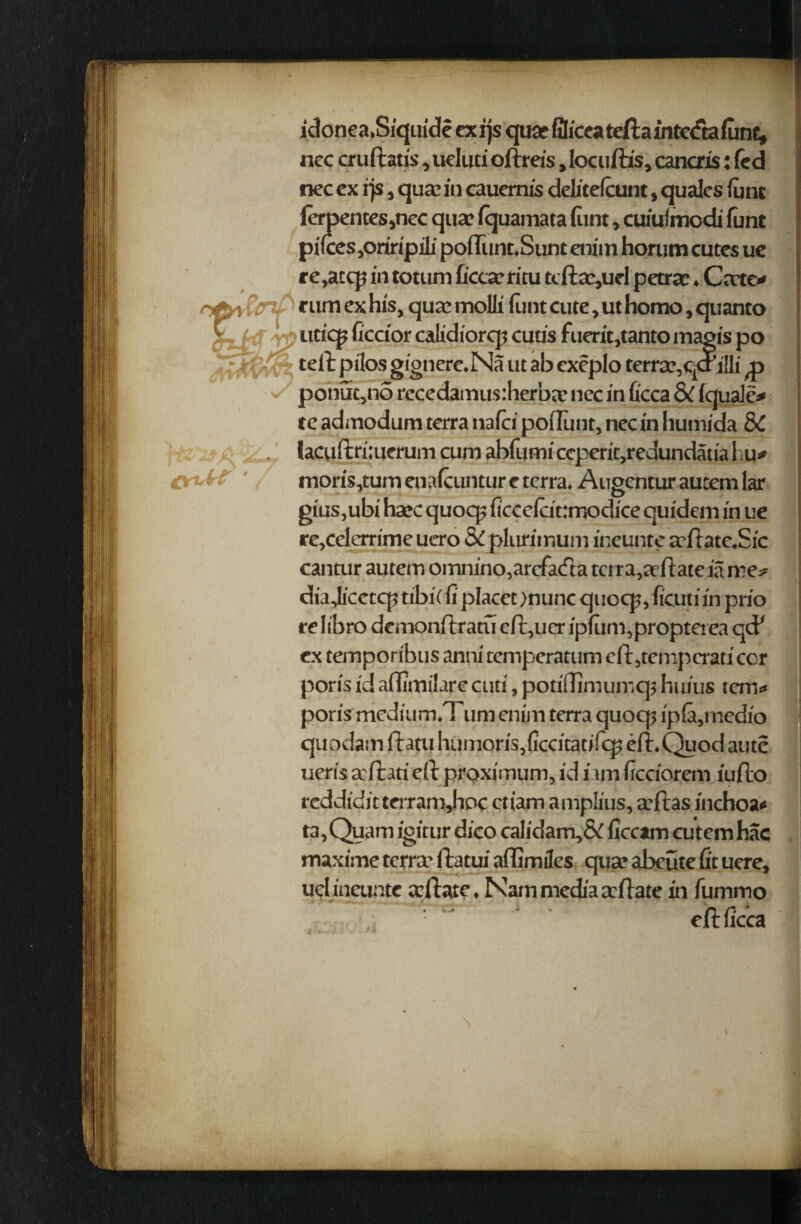 idonea.Siquidē ex ijs quæ ſilicea teſta intecta ſunt,
nec cruſtatis, ueluti oſtreis, locuſtis, cancris: ſed
nec ex ijs, quæ in cauernis deliteſcunt, quales ſunt
ſerpentes,nec quæ ſquamata ſunt, cuiuſmodi ſunt
piſces,oriri pili poſſunt.Sunt enim horum cutes ue
re,atq; in totum ſiccæ ritu teſtæ,uel petræ. Cæte-
rum ex his, quæ molli ſunt cute, ut homo, quanto
utiq; ſiccior calidiorq; cutis fuerit,tanto magis po
teſt pilos gignere.Nā ut ab exēplo terræ,qd' illi ꝓ
ponūt,nō recedamus:herbæ nec in ſicca & ſqualē-
te admodum terra naſci poſſunt, nec in humida &
lacuſtri:uerum cum abſumi ceperit,redundātia hu-
moris,tum enaſcuntur e terra. Augentur autem lar
gius,ubi hæc quoq; ſicceſcit:modice quidem in ue
re,celerrime uero & plurimum ineunte æſtate.Sic
cantur autem omnino,arefacta terra,æſtate iā me-
dia,licetq; tibi(ſi placet)nunc quoq;, ſicuti in prio
re libro demonſtratū eſt,uer ipſum,propterea qd'
ex temporibus anni temperatum eſt,temperati cor
poris id aſſimilare cuti, potiſſimumq; huius tem-
poris medium.Tum enim terra quoq; ipſa,medio
quodam ſtatu humoris,ſiccitatiſq; ēſt.Quod autē
ueris æſtati eſt proximum, id iam ſicciorem iuſto
reddidit terram,hoc etiam amplius, æſtas inchoa-
ta,Quam igitur dico calidam,& ſiccam cutem hāc
maxime terræ ſtatui aſſimiles quæ abeūte ſit uere,
uel ineunte æſtate. Nam media æſtate in ſummo
eſt ſicca